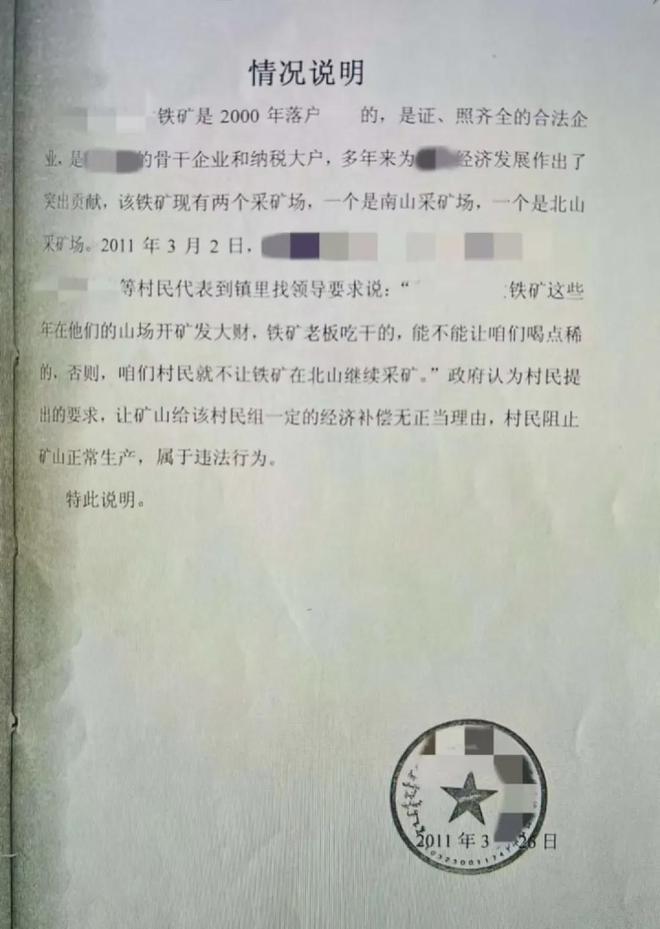 情况说明
铁矿是 2000 年落户 的，是证、照齐全的合法企
业，是 的骨干企业和纳税大户，多年来为 经济发展作出了
突出贡献，该铁矿现有两个采矿场，一个是南山采矿场，一个是北山
采矿场。2011 年 3 月 2 日，
等村民代表到镇里找领导要求说：“ 铁矿这些
年在他们的山场开矿发大财，铁矿老板吃干的，能不能让咱们喝点稀
的，否则，咱们村民就不让铁矿在北山继续采矿。”政府认为村民提
出的要求，让矿山给该村民组一定的经济补偿无正当理由，村民阻止
矿山正常生产，属于违法行为。
特此说明。
2011 年 3 26 日